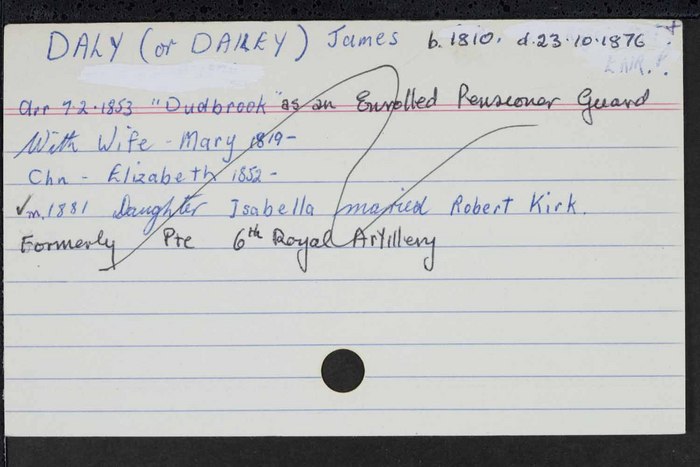 DALY (or DALEY) James b. 1810. d. 23.10.1876
arr 7.2.1853 "Dudbrook" as an Enrolled Pensioner Guard
With Wife - Mary 1819-
Chn - Elizabeth 1852-
✓m, 1881 Daughter Isabella married Robert Kirk.
Formerly Pte 6th Royal Artillery